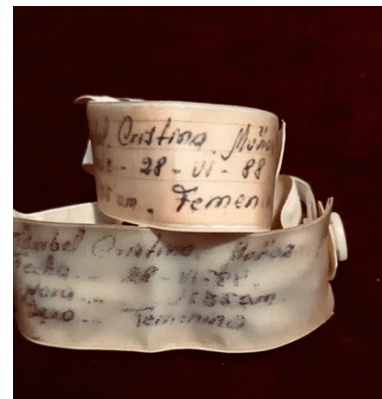 Cristina Muñoz
28 - VI - 88
am. Femenino
Isabel Cristina Muñoz
Fecha... 28 - VI - 88
Hora ... am.
Sexo ... Femenino